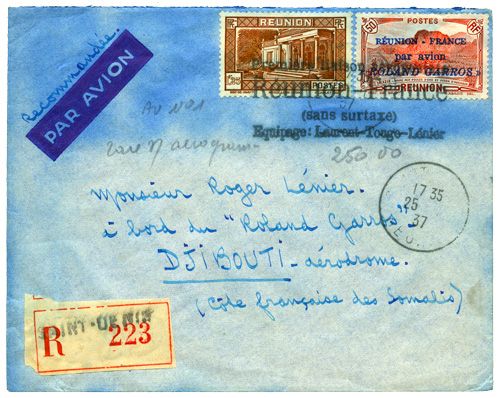 Recommandée.
PAR AVION
RÉUNION
POSTES
RÉUNION - FRANCE
par avion
"ROLAND GARROS"
RÉUNION
Réunion-France
(sans surtaxe)
Equipage: Laurent-Touge-Lénier
AV Nº1
250 00
17 35
25
37
Monsieur Roger Lénier.
à bord du "Roland Garros"
DJIBOUTI - aérodrome.
(Côte française des Somalis)
SAINT-DENIS
R 223